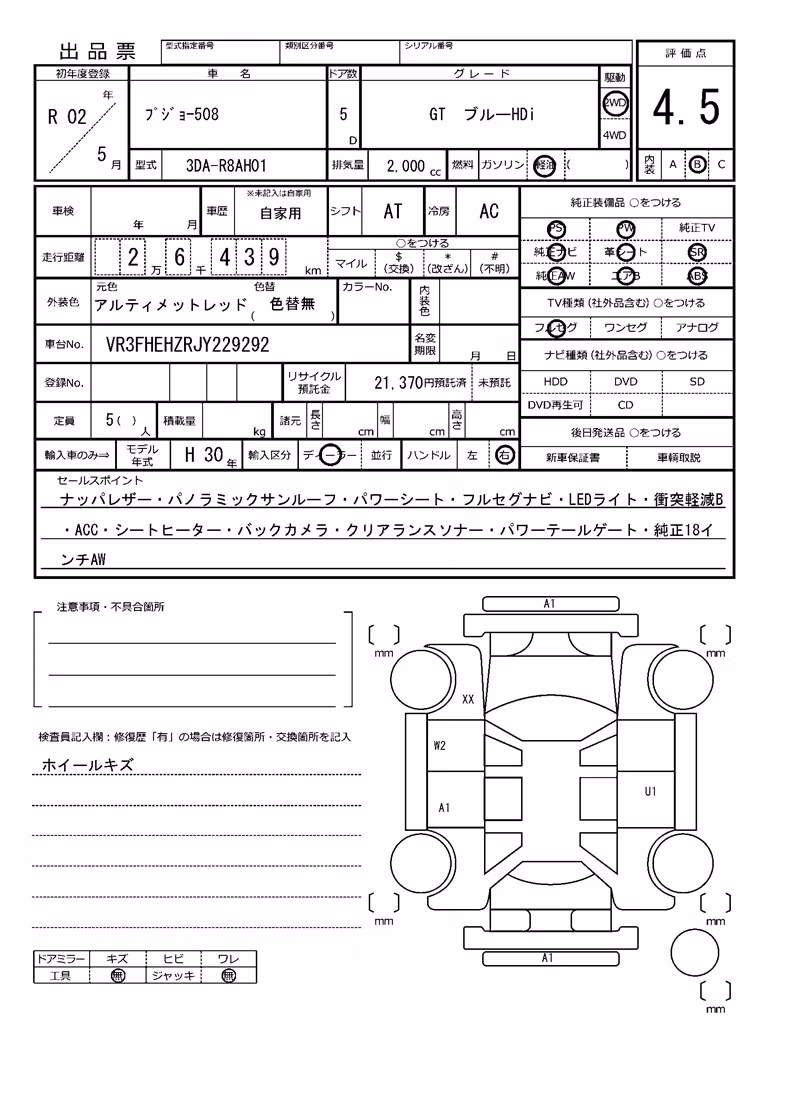 出品票
型式指定番号 類別区分番号 シリアル番号
評価点
4.5
内装 A B C
初年度登録 車名 ドア数 グレード 駆動
R 02 年 5 月
プジョー508
5 D
GT ブルーHDi
2WD
4WD
型式 3DA-R8AH01 排気量 2,000 cc 燃料 ガソリン 軽油 ( )
車検 年 月 車歴 ※未記入は自家用 自家用 シフト AT 冷房 AC
走行距離 2 万 6 千 4 3 9 km
○をつける
マイル $(交換) *(改ざん) #(不明)
外装色 元色 アルティメットレッド 色替 ( 色替無 ) カラーNo. 内装色
車台No. VR3FHEHZRJY229292 名変期限 月 日
登録No. リサイクル預託金 21,370円預託済 未預託
定員 5( ) 人 積載量 kg 諸元 長さ cm 幅 cm 高さ cm
輸入車のみ⇒ モデル年式 H 30 年 輸入区分 ディーラー 並行 ハンドル 左 右
純正装備品 ○をつける
PS PW 純正TV
純正ナビ 革シート SR
純正AW エアB ABS
TV種類(社外品含む)○をつける
フルセグ ワンセグ アナログ
ナビ種類(社外品含む)○をつける
HDD DVD SD
DVD再生可 CD
後日発送品 ○をつける
新車保証書 車輌取説
セールスポイント
ナッパレザー・パノラミックサンルーフ・パワーシート・フルセグナビ・LEDライト・衝突軽減B
・ACC・シートヒーター・バックカメラ・クリアランスソナー・パワーテールゲート・純正18イ
ンチAW
注意事項・不具合箇所
検査員記入欄:修復歴「有」の場合は修復箇所・交換箇所を記入
ホイールキズ
ドアミラー キズ ヒビ ワレ
工具 無 ジャッキ 無
A1
mm mm
XX
W2
A1 U1
mm mm
A1
mm